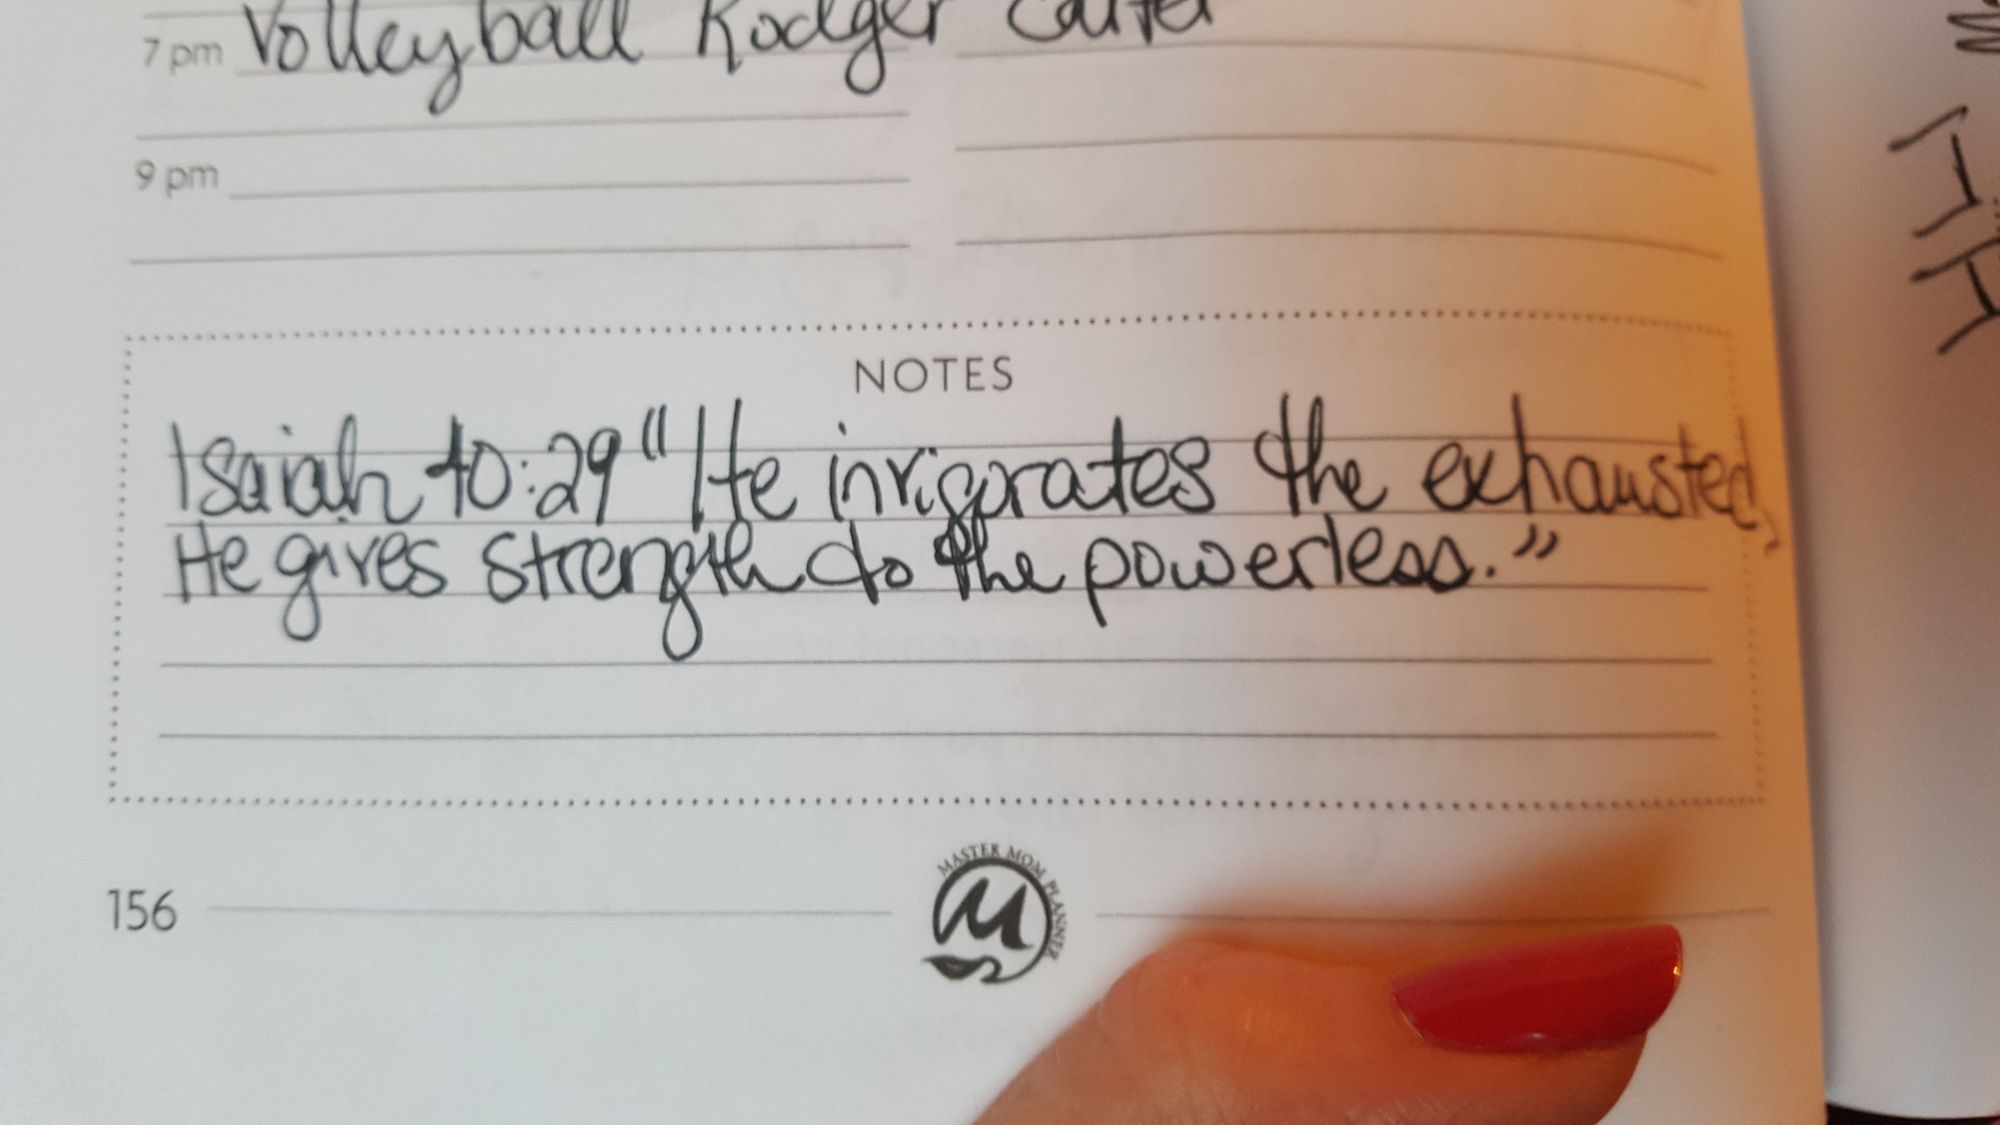 7 pm Volleyball Rodger
9 pm
NOTES
Isaiah 40:29 "He invigorates the exhausted,
He gives strength to the powerless."
156
MASTER MOM PLANNER
M